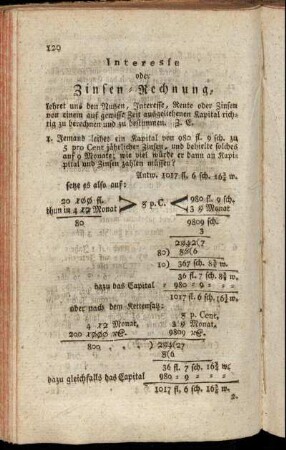 120
Interesse
oder
Zinsen-Rechnung,
lehret uns den Nutzen, Interesse, Rente oder Zinsen
von einem auf gewisse Zeit ausgeliehenen Kapital rich-
tig zu berechnen und zu bestimmen. Z. E.
1. Jemand leihet ein Kapital von 980 fl. 9 sch. zu
5 pro Cent jährlicher Zinsen, und behielte solches
auf 9 Monate; wie viel würde er dann an Kapi-
tal und Zinsen zahlen müssen?
Antw. 1017 fl. 6 sch. 16⅞ w.
setze es also auf:
20 100 fl. 980 fl. 9 sch.
thun in 4 12 Monat > 5 p.C. < 3 9 Monat
80 9809 sch.
3
2942(7
80) 82(6
10) 367 sch. 8⅞ w.
36 fl. 7 sch. 8⅞ w.
dazu das Capital 980 = 9 = =
1017 fl. 6 sch. 16⅞ w.
oder nach dem Kettensatz:
5 p. Cent,
4 12 Monat, 3 9 Monat,
200 1000 9809
800 ) 2942(7
8(6
36 fl. 7 sch. 16⅞ w.
dazu gleichfalls das Capital 980 = 9 = =
1017 fl. 6 sch. 16⅞ w.
2.